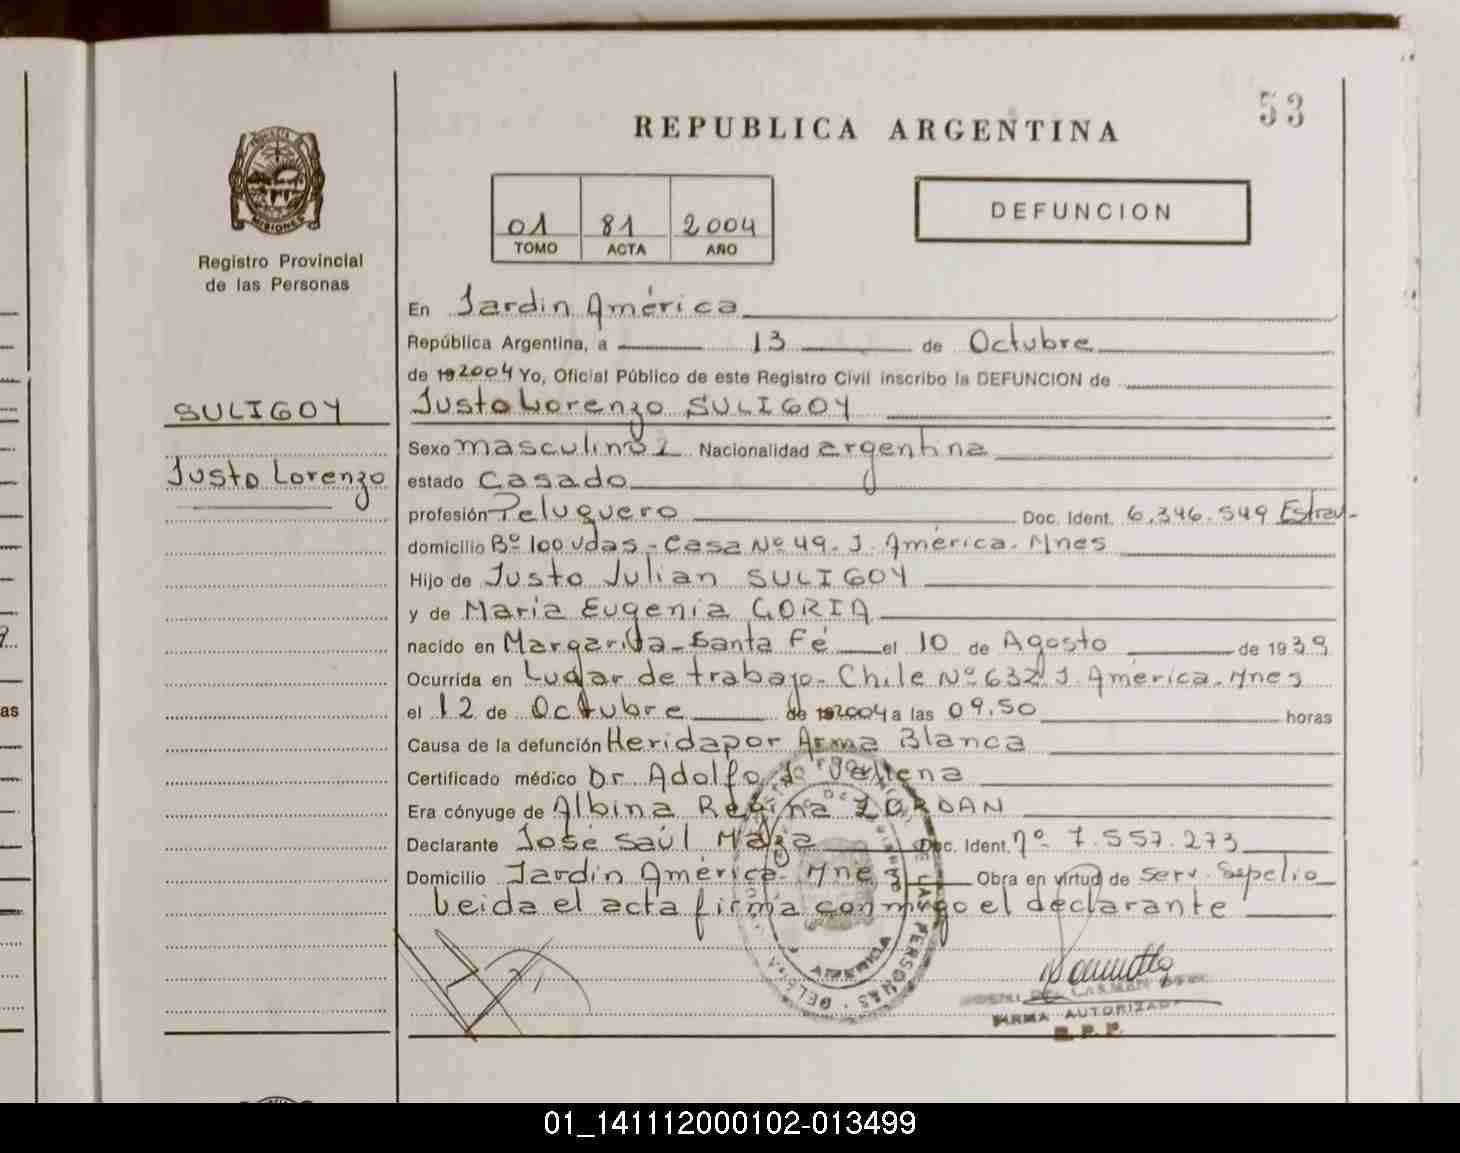 53
REPUBLICA ARGENTINA
01 81 2004
TOMO ACTA AÑO
DEFUNCION
MISIONES
Registro Provincial
de las Personas
SULIGOY
Justo Lorenzo
En Jardin América
República Argentina, a 13 de Octubre
de 19 2004 Yo, Oficial Público de este Registro Civil inscribo la DEFUNCION de
Justo Lorenzo SULIGOY
Sexo masculino Nacionalidad argentina
estado Casado
profesión Peluquero Doc. Ident. 6.346.549 Estrav-
domicilio Bº 100 Vdas - Casa Nº 49. J. América. Mnes
Hijo de Justo Julian SULIGOY
y de Maria Eugenia GORIA
nacido en Margarita - Santa Fé el 10 de Agosto de 1939
Ocurrida en Lugar de trabajo - Chile Nº 632 J. América. Mnes
el 12 de Octubre de 19 2004 a las 09.50 horas
Causa de la defunción Herida por Arma Blanca
Certificado médico Dr Adolfo
Era cónyuge de Albina Regina ZORDAN
Declarante José Saúl Maza Doc. Ident. nº 7.557.273
Domicilio Jardín América - Mnes Obra en virtud de Serv. Sepelio
Leida el acta firma conmigo el declarante
DE LAS PERSONAS
AMERICA
DEL CARMEN
FIRMA AUTORIZADA
R. P. P.
01_141112000102-013499